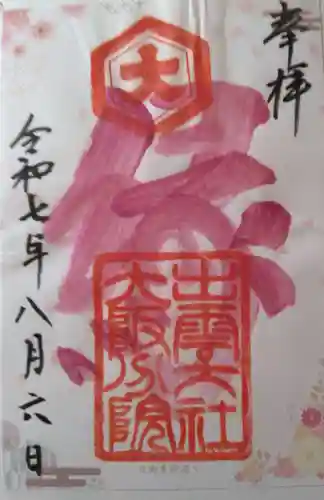 奉拝
大
出雲大社
大阪分院
令和七年八月六日